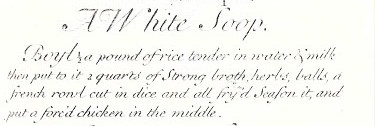 A White Soop.
Boyl ½ a pound of rice tender in water & milk
then put to it 2 quarts of Strong broth, herbs, balls, a
french rowl cut in dice and all fry'd Season it, and
put a forc'd chicken in the middle.